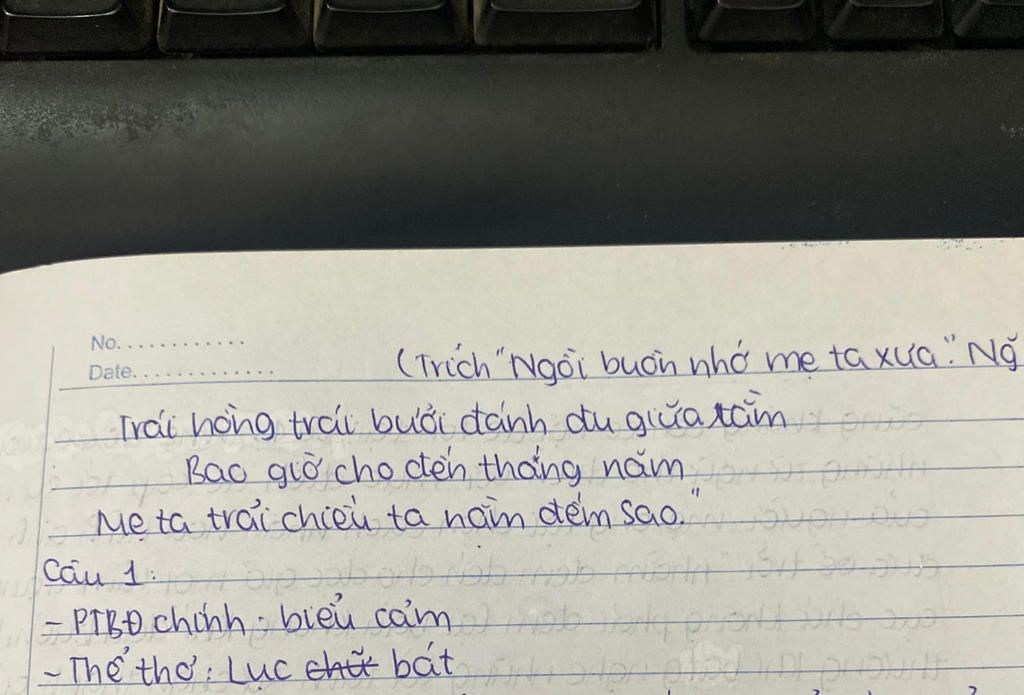 No.............
Date..............
(Trích "Ngồi buồn nhớ mẹ ta xưa". Ng
Trái hồng trái bưởi đánh đu giữa rằm
Bao giờ cho đến tháng năm
Mẹ ta trải chiếu ta nằm đếm sao."
Câu 1:
- PTBĐ chính: biểu cảm
- Thể thơ: Lục bát